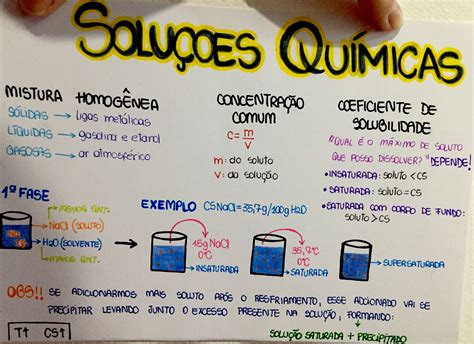 SOLUÇOES QUÍMICAS
MISTURA HOMOGÊNEA
SÓLIDAS → ligas metálicas
LÍQUIDAS → gasolina e etanol
GASOSAS → ar atmosférico
CONCENTRAÇÃO
COMUM
C = m
V
m: do soluto
V: da solução
COEFICIENTE DE
SOLUBILIDADE
"QUAL É O MÁXIMO DE SOLUTO
QUE POSSO DISSOLVER?" DEPENDE!
• INSATURADA: soluto < CS
• SATURADA: soluto = CS
• SATURADA COM CORPO DE FUNDO:
soluto > CS
1ª FASE
MENOR QNT.
NaCl (SOLUTO)
H2O (SOLVENTE)
MAIOR QNT.
EXEMPLO CS NaCl = 35,7g/100g H2O
15g NaCl
0°C
INSATURADA
35,7g
0°C
SATURADA
SUPERSATURADA
OBS!! SE ADICIONARMOS MAIS SOLUTO APÓS O RESFRIAMENTO, ESSE ADICIONADO VAI SE
PRECIPITAR LEVANDO JUNTO O EXCESSO PRESENTE NA SOLUÇÃO, FORMANDO:
T↑ CS↑
SOLUÇÃO SATURADA + PRECIPITADO